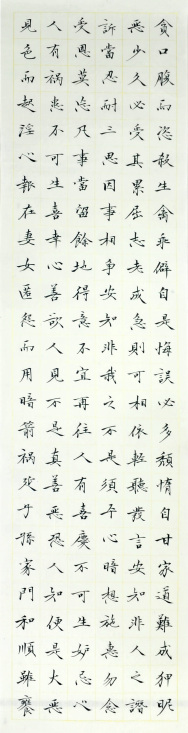 貪口腹而恣殺生禽乖僻自是悔誤必多頹惰自甘家道難成狎昵
惡少久必受其累屈志老成急則可相依輕聽發言安知非人之譖
訴當忍耐三思因事相爭安知非我之不是須平心暗想施惠勿念
受恩莫忘凡事當留餘地得意不宜再往人有喜慶不可生妒忌心
人有禍患不可生喜幸心善欲人見不是真善惡恐人知便是大惡
見色而起淫心報在妻女匿怨而用暗箭禍延子孫家門和順雖饔